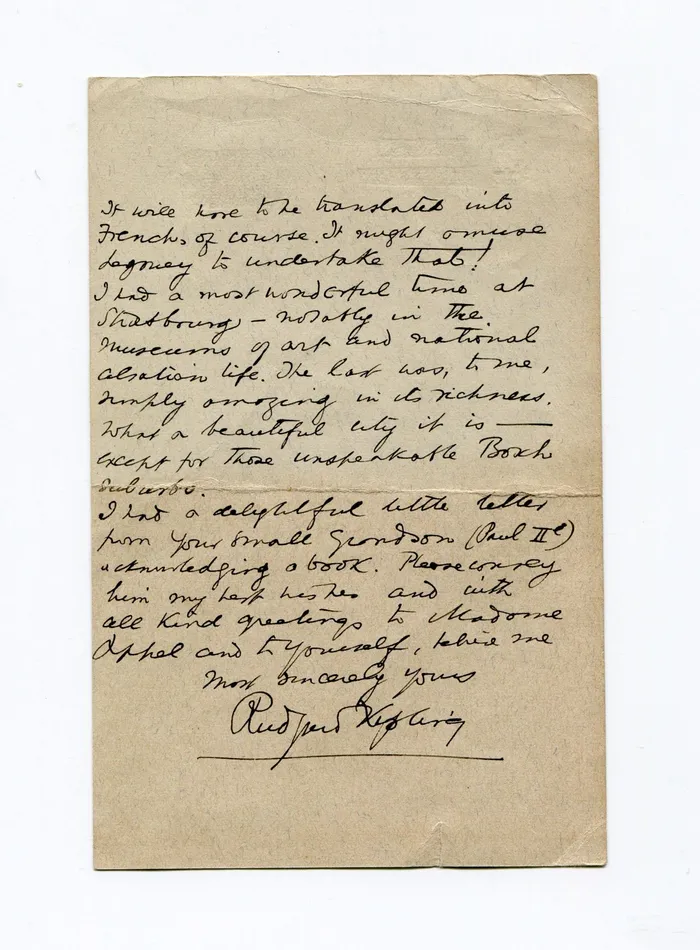 It will have to be translated into
French, of course. It might amuse
to undertake that!
I had a most wonderful time at
Strasbourg – notably in the
museums of art and national
alsatian life. The last was, to me,
simply amazing in its richness.
What a beautiful city it is —
except for those unspeakable Boch
suburbs.
I had a delightful little letter
from your small Grandson (Paul IIe)
acknowledging a book. Please convey
him my best wishes and with
all kind greetings to Madame
Appel and to yourself, believe me
most sincerely yours
Rudyard Kipling